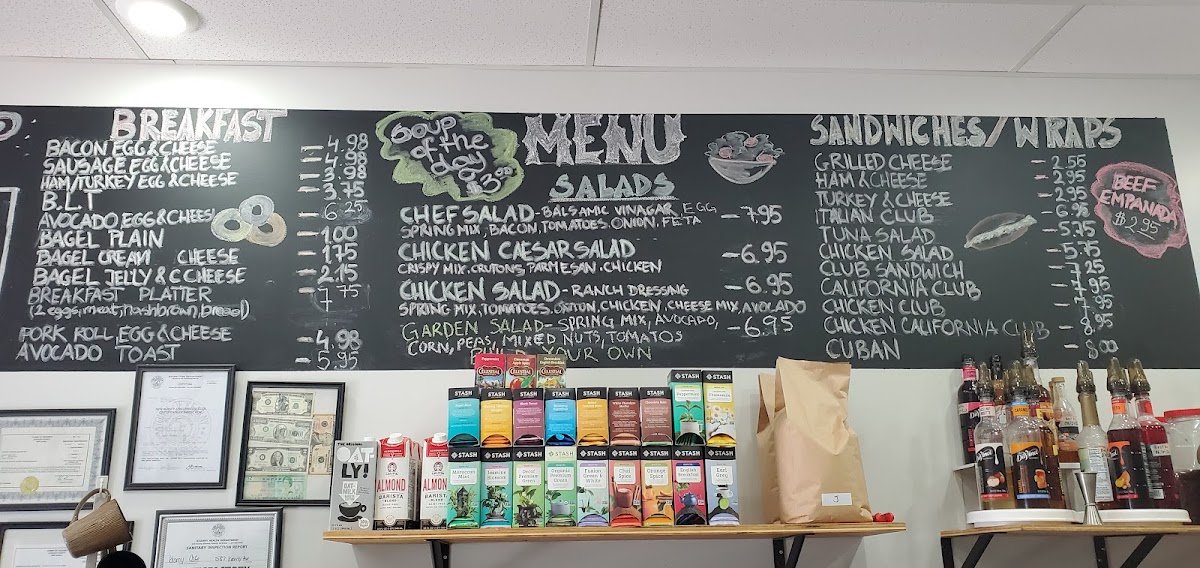 BREAKFAST
BACON EGG & CHEESE - 4.98
SAUSAGE EGG & CHEESE - 4.98
HAM/TURKEY EGG & CHEESE - 3.98
B.L.T - 3.75
AVOCADO, EGG & CHEESE - 6.25
BAGEL PLAIN - 1.00
BAGEL CREAM CHEESE - 1.75
BAGEL JELLY & C CHEESE - 2.15
BREAKFAST PLATTER - 7.75
(2 eggs, meat, hashbrown, bread)
PORK ROLL, EGG & CHEESE - 4.98
AVOCADO TOAST - 5.95
Soup
of the
day
$3.00
MENU
SALADS
CHEF SALAD - BALSAMIC VINAGAR, EGG - 7.95
SPRING MIX, BACON, TOMATOES, ONION, FETA
CHICKEN CAESAR SALAD - 6.95
CRISPY MIX, CRUTONS, PARMESAN, CHICKEN
CHICKEN SALAD - RANCH DRESSING - 6.95
SPRING MIX, TOMATOES, ONION, CHICKEN, CHEESE MIX, AVOLADO
GARDEN SALAD - SPRING MIX, AVOCADO, - 6.95
CORN, PEAS, MIXED NUTS, TOMATOS
YOUR OWN
SANDWICHES/WRAPS
GRILLED CHEESE - 2.55
HAM & CHEESE - 2.95
TURKEY & CHEESE - 2.95
ITALIAN CLUB - 6.98
TUNA SALAD - 5.75
CHICKEN SALAD - 5.75
CLUB SANDWICH - 7.25
CALIFORNIA CLUB - 7.95
CHICKEN CLUB - 7.95
CHICKEN CALIFORNIA CLUB - 8.95
CUBAN - 8.00
BEEF
EMPANADA
$2.95
CELESTIAL CELESTIAL CELESTIAL
STASH STASH STASH STASH STASH STASH STASH STASH STASH
Peppermint
THE ORIGINAL
OAT-
LY!
OAT-MILK
ALMOND
BARISTA
ALMOND
BARISTA
STASH STASH STASH STASH STASH STASH STASH STASH STASH
Moroccan Mint
Jasmine Blossom
Decaf Premium Green
Organic Premium Green
Fusion Green & White
Chai Spice
Orange Spice
English Breakfast
Earl Grey
J
SANITARY INSPECTION REPORT